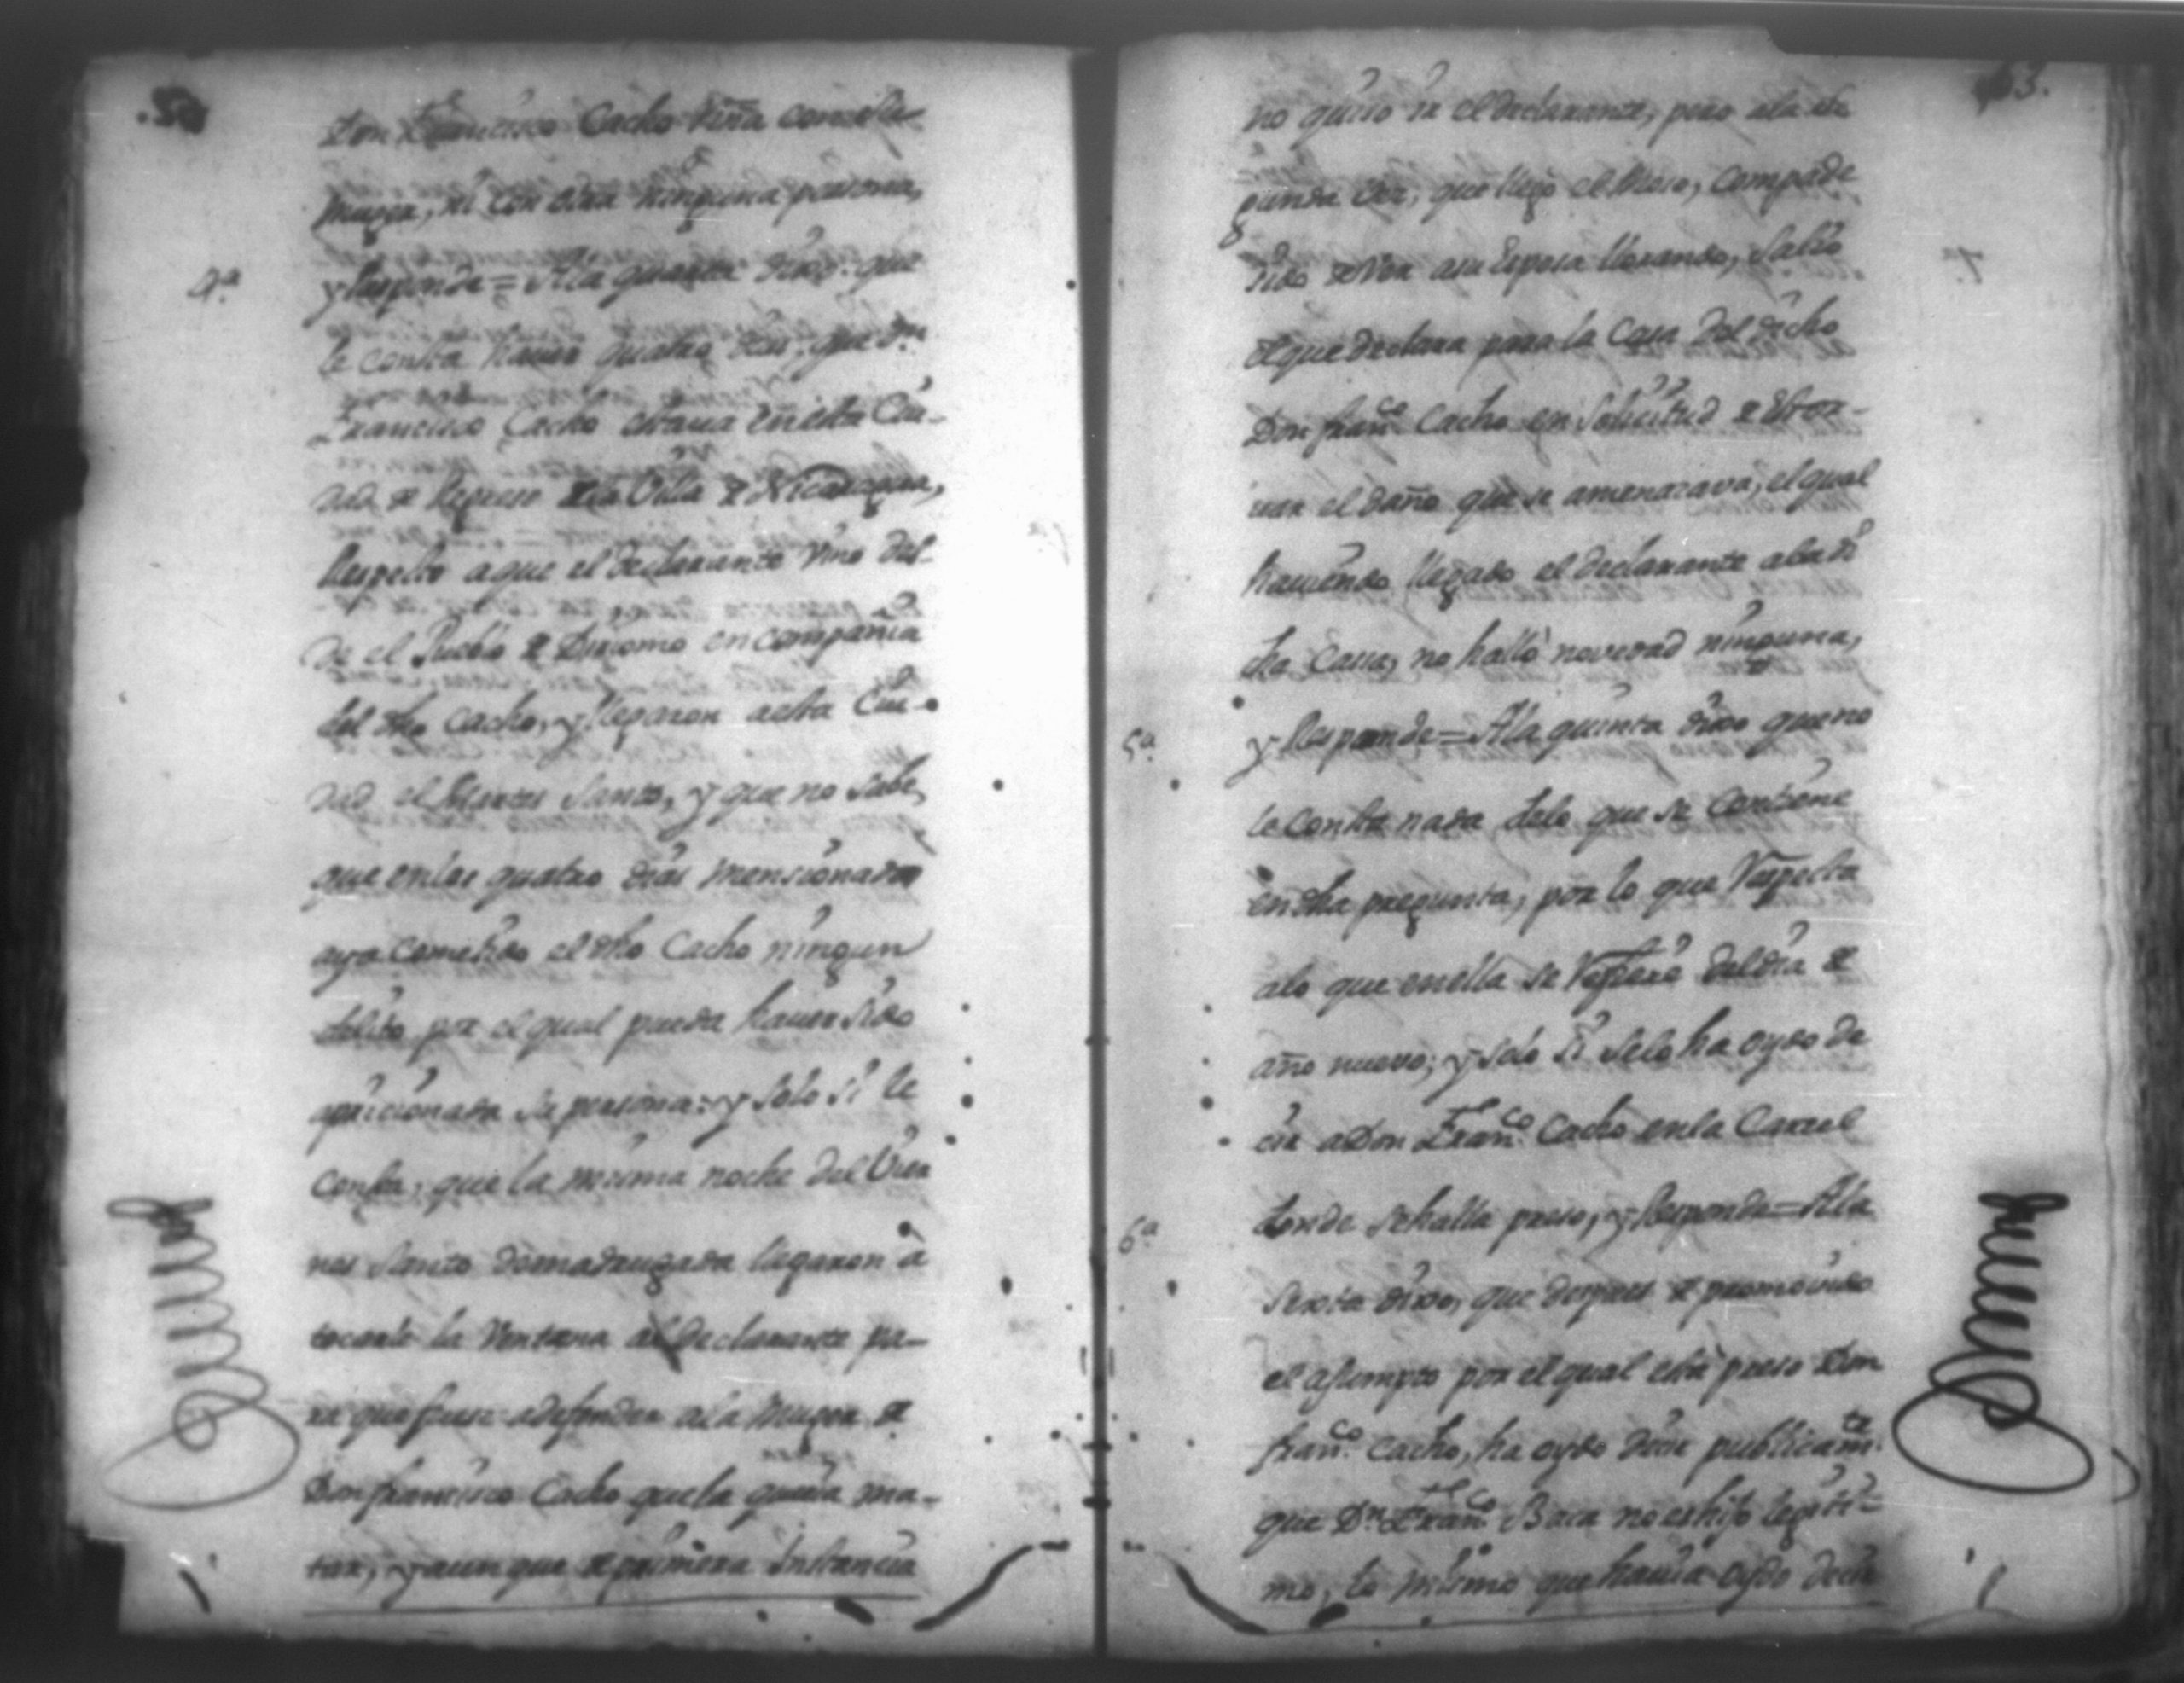 Don Francisco Cacho riña con ela
muger, ni con otra ninguna persona,
4.ª
y Responde = Ala quarta dixo: que
le consta haver quatro dias, que Dn.
Francisco Cacho estava en esta Ciu-
dad de Regreso dela Villa de Nicaragua,
Respecto aque el declarante vino des-
de el Pueblo de Diriomo en compañia
del dho Cacho, y llegaron aesta Ciu-
dad el Martes Santo, y que no sabe,
que enlos quatro dias mensionados
aya cometido el dho Cacho ningun
delito por el qual pueda haver sido
apricionada su persona: y solo si le
consta, que la mesma noche del Vier
nes Santo demadrugada llegaron à
tocarle la Ventana al declarante pa-
ra que fuese adefender ala Muger de
Don Francisco Cacho quela queria ma-
tar, y aunque de primera Instancia
63.
no quiso ir el declarante, pero ala se
gunda vez, que llegó el Moso, compade
sido de ver asu Esposa llorando, salió
el que declara para la Casa del dicho
Don Franco. Cacho en solicitud de Estor-
var el daño que se amenazava, el qual
haviendo llegado el declarante ala di
cha Cassa, no halló novedad ninguna,
5.ª
y Responde = Ala quinta dixo que no
le consta nada delo que se contiene
en dha pregunta, por lo que Respecta
alo que enella se Refiere del dia de
año nuevo; y solo si selo ha oydo de
cir a Don Franco. Cacho enla Carzel
donde sehalla preso, y Responde = Ala
6.ª
sexta dixo, que despues de promovido
el asumpto por el qual està preso Don
Franco. Cacho, ha oydo decir publicamte.
que Dn. Franco. Baca no es hijo legiti-
mo, lo mismo que havia oydo decir